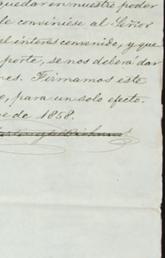 quedar en nuestro poder
le conviniése al Señor
el interes convenido, y que
porte, se nos deberá dar
nes. Firmamos este
, para un solo efecto.
e de 1858.